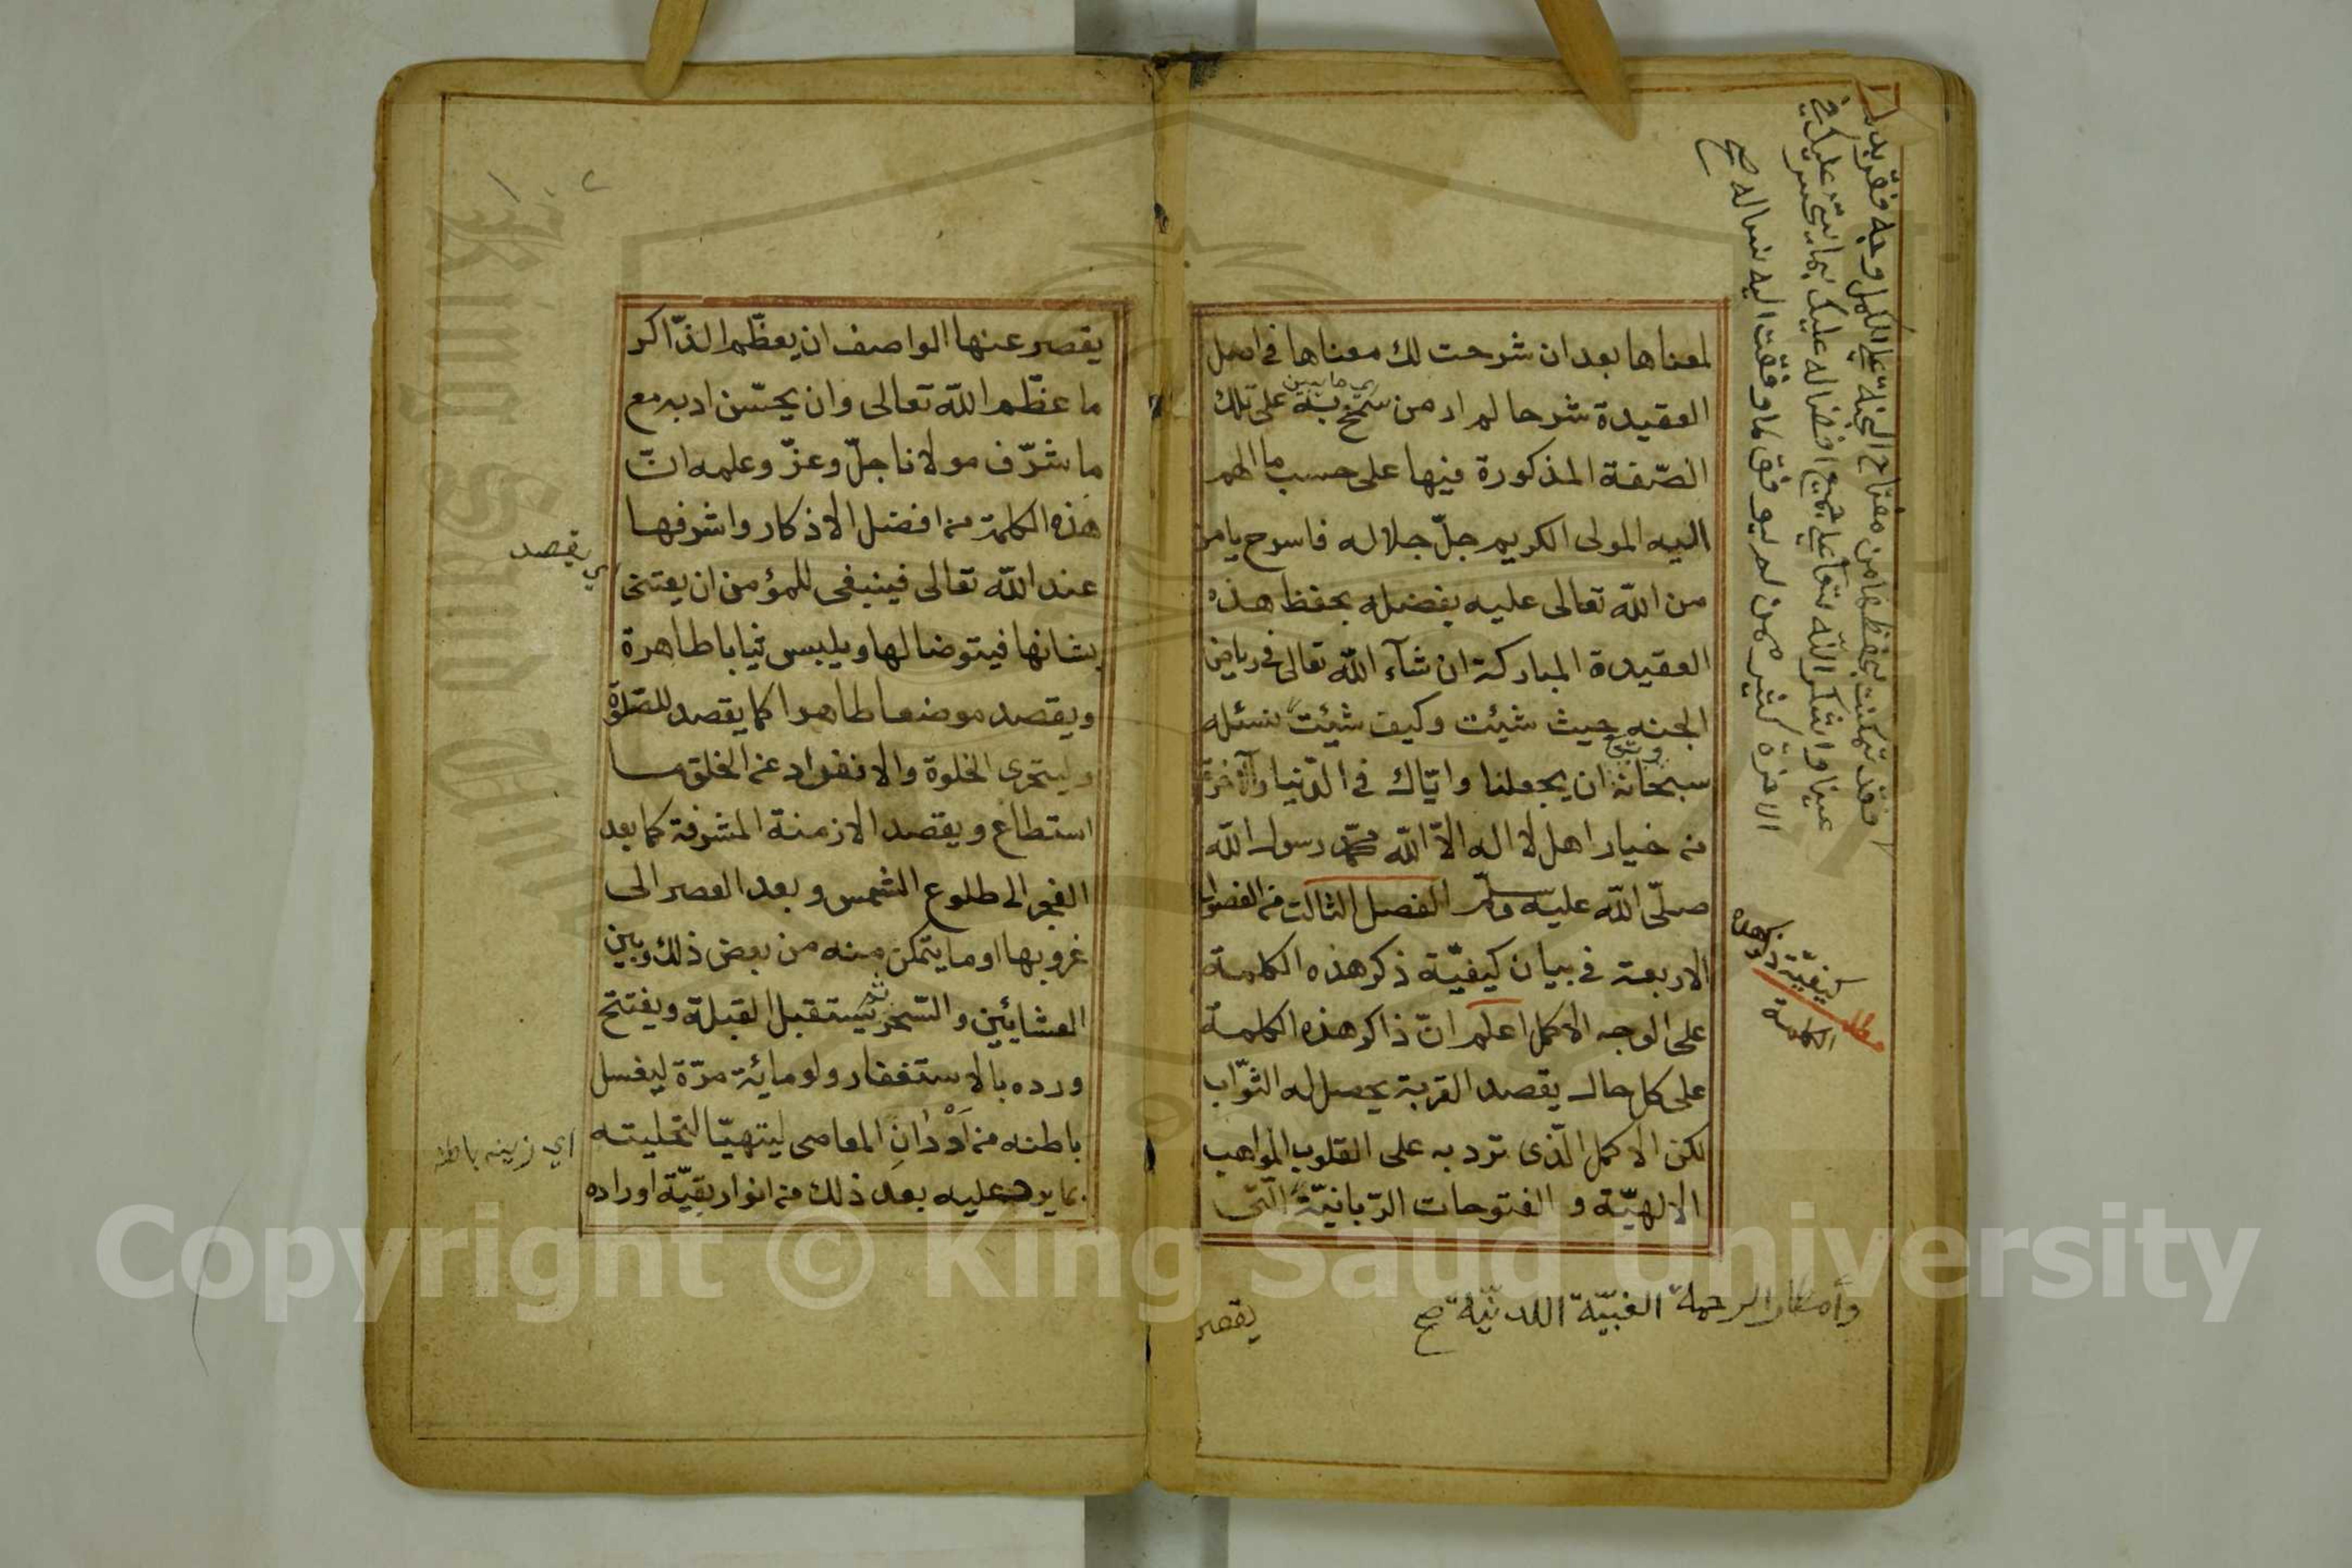 لمعناها بعد ان شرحت لك معناها في اصل
العقيدة شرحا لم ار من سمح به على تلك
الصّفة المذكورة فيها على حسب ما الهم
اليه المولى الكريم جلّ جلاله فاسرح يا من
من الله تعالى عليه بفضله بحفظ هذه
العقيدة المباركة ان شآء الله تعالى في رياض
الجنه حيث شيئت وكيف شيئت نسئله
سبحانه ان يجعلنا وايّاك في الدّنيا والآخرة
من خيار اهل لا اله الاّ الله محمّد رسول الله
صلّى الله عليه وسلّم الفصل الثالث من الفصول
الاربعة في بيان كيفيّة ذكر هذه الكلمة
على الوجه الاكمل اعلم انّ ذاكر هذه الكلمة
على كل حال يقصد القربة يحصل له الثوّاب
لكن الاكمل الّذى ترد به على القلوب المواهب
الالهيّة و الفتوحات الرّبانيّة الّتى
وأمطار الرحمة الغيبيّة اللدنيّة صح
يقصر
كيفيّة ذكر هذه
الكلمة
فقد تمكنت بحفظها من مفتاح الجنة على اكمل وجه
الاخرة كثير ممن لم يوفق لما وفقت اليه صح
يقصر عنها الواصف ان يعظّم الذّاكر
ما عظّم الله تعالى وان يحسّن ادبه مع
ما شرّف مولانا جلّ وعزّ وعلمه انّ
هذه الكلمة من افضل الاذكار واشرفها
عند الله تعالى فينبغى للمؤمن ان يعتنى
بشانها فيتوضا لها ويلبس ثيابا طاهرة
ويقصد موضعا طاهرا كما يقصد للصّلوة
وليتحرى الخلوة والانفراد عن الخلق ما
استطاع ويقصد الازمنة المشرفة كما بعد
الفجر الى طلوع الشمس وبعد العصر الى
غروبها او ما يتمكن منه من بعض ذلك وبين
العشايئين والسّحر ثم يستقبل القبلة ويفتتح
ورده بالاستغفار ولو مائة مرّة ليغسل
باطنه من اَوْدانِ المعاصى ليتهيّا لتحليته
بما يرد عليه بعد ذلك من انوار بقيّة اوراده
اي يقصد
اي زينه باطنه
Copyright © King Saud University